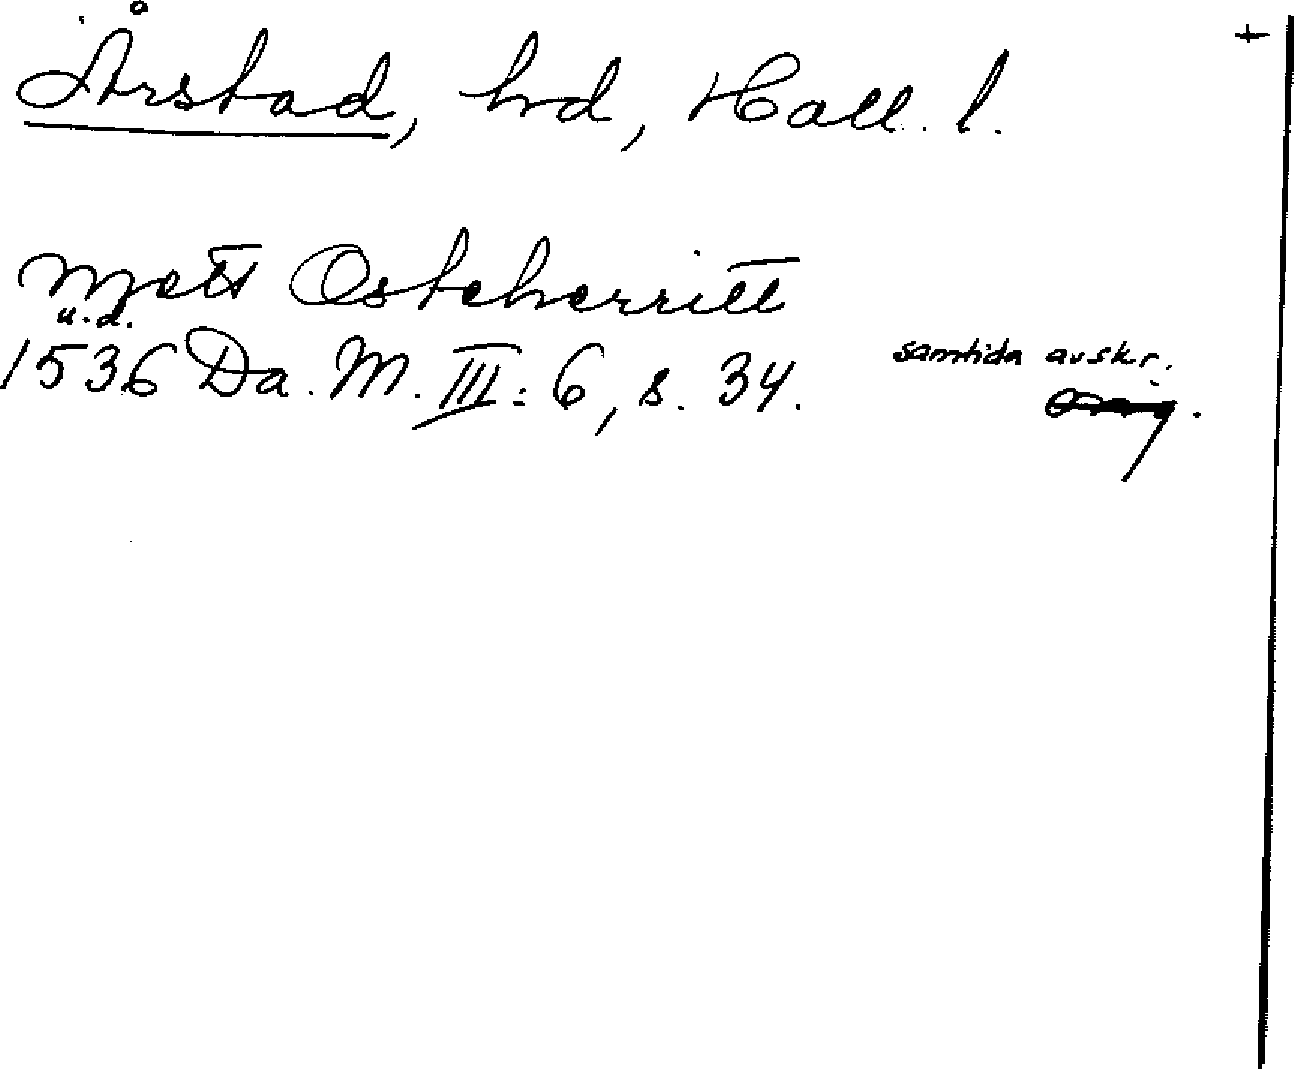 +
Årstad, hd, Hall. l.
mett Osteherritt
u.d.
1536 Da. M. III: 6, s. 34. samtida avskr.